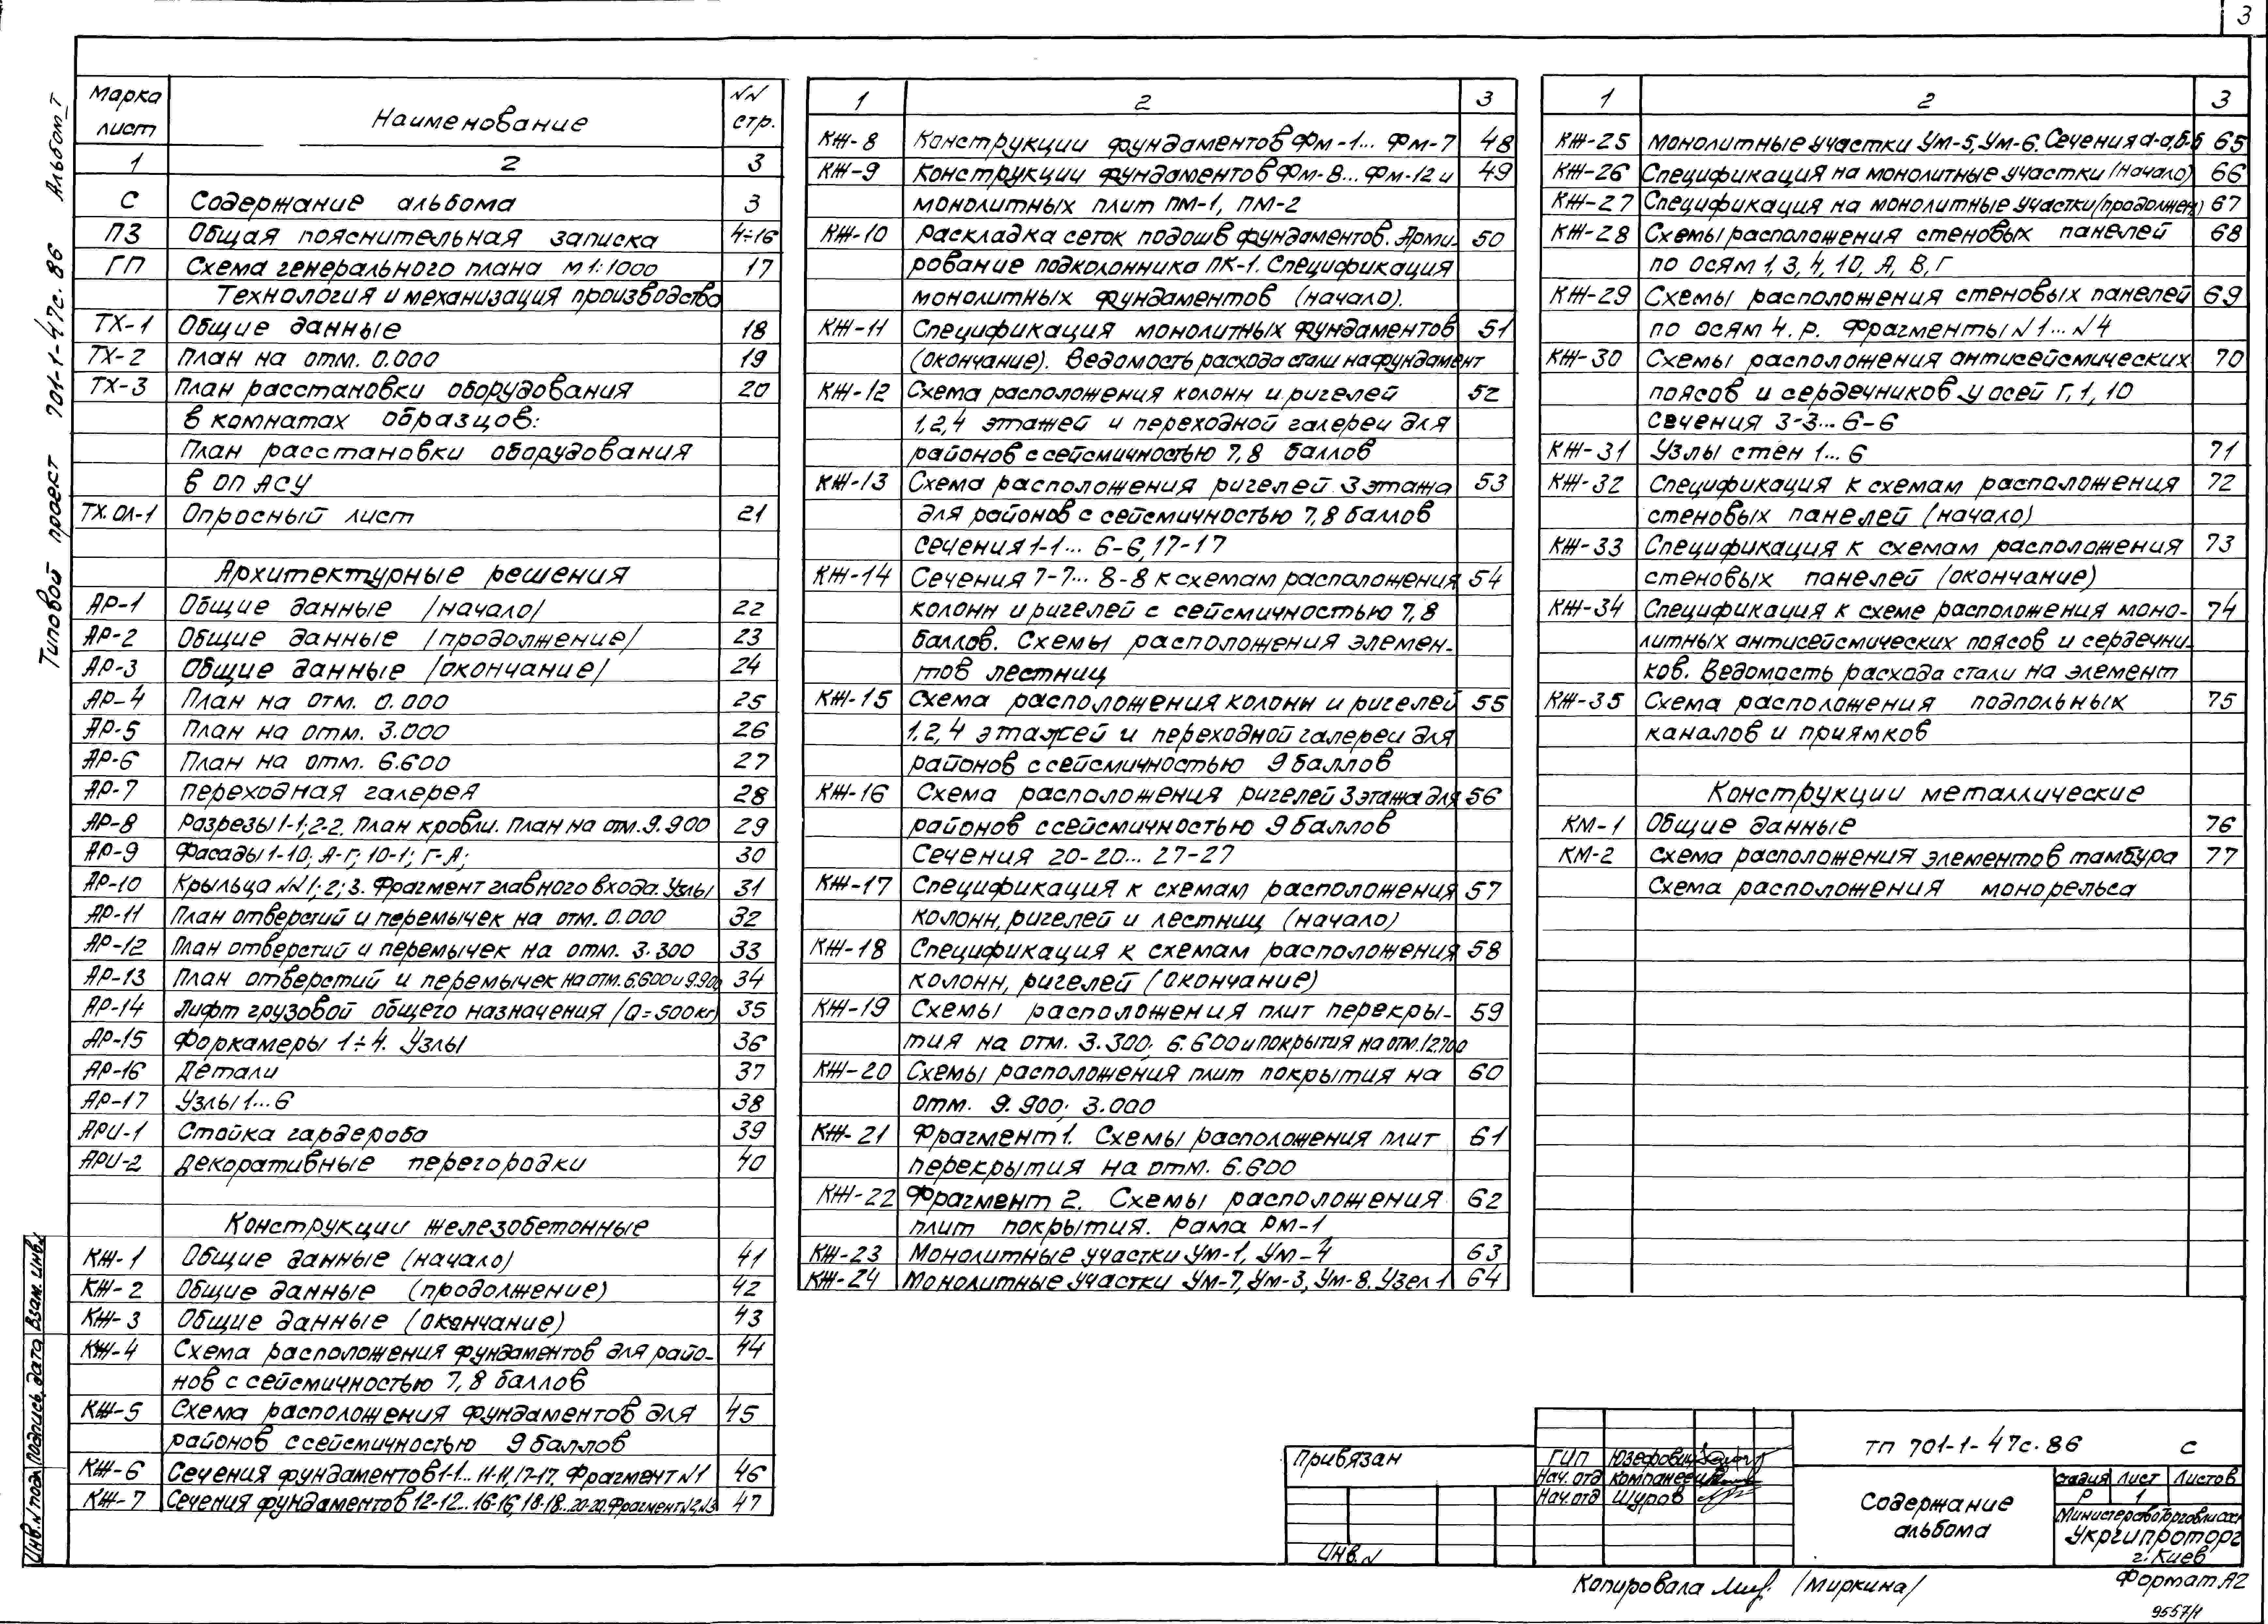 3
Альбом I
Типовой проект 701-1-47с.86
Марка лист | Наименование | NN стр.
1 | 2 | 3
С | Содержание альбома | 3
ПЗ | Общая пояснительная записка | 4÷16
ГП | Схема генерального плана М 1:1000 | 17
Технология и механизация производства
ТХ-1 | Общие данные | 18
ТХ-2 | План на отм. 0.000 | 19
ТХ-3 | План расстановки оборудования | 20
в комнатах образцов:
План расстановки оборудования
в ОП АСУ
ТХ.ОЛ-1 | Опросный лист | 21
Архитектурные решения
АР-1 | Общие данные /начало/ | 22
АР-2 | Общие данные /продолжение/ | 23
АР-3 | Общие данные /окончание/ | 24
АР-4 | План на отм. 0.000 | 25
АР-5 | План на отм. 3.000 | 26
АР-6 | План на отм. 6.600 | 27
АР-7 | Переходная галерея | 28
АР-8 | Разрезы 1-1; 2-2. План кровли. План на отм. 9.900 | 29
АР-9 | Фасады 1-10; А-Г; 10-1; Г-А; | 30
АР-10 | Крыльца NN 1; 2; 3. Фрагмент главного входа. Узлы | 31
АР-11 | План отверстий и перемычек на отм. 0.000 | 32
АР-12 | План отверстий и перемычек на отм. 3.300 | 33
АР-13 | План отверстий и перемычек на отм. 6.600 и 9.900 | 34
АР-14 | Лифт грузовой общего назначения /Q=500кг) | 35
АР-15 | Форкамеры 1÷4. Узлы | 36
АР-16 | Детали | 37
АР-17 | Узлы 1...6 | 38
АРИ-1 | Стойка гардероба | 39
АРИ-2 | Декоративные перегородки | 40
Конструкции железобетонные
КЖ-1 | Общие данные (начало) | 41
КЖ-2 | Общие данные (продолжение) | 42
КЖ-3 | Общие данные (окончание) | 43
КЖ-4 | Схема расположения фундаментов для райо- | 44
нов с сейсмичностью 7, 8 баллов
КЖ-5 | Схема расположения фундаментов для | 45
районов с сейсмичностью 9 баллов
КЖ-6 | Сечения фундаментов 1-1... 11-11, 17-17. Фрагмент N1 | 46
КЖ-7 | Сечения фундаментов 12-12... 16-16, 18-18...20-20. Фрагмент N2, N3 | 47
1 | 2 | 3
КЖ-8 | Конструкции фундаментов Фм-1... Фм-7 | 48
КЖ-9 | Конструкции фундаментов Фм-8... Фм-12 и | 49
монолитных плит ПМ-1, ПМ-2
КЖ-10 | Раскладка сеток подошв фундаментов. Арми- | 50
рование подколонника ПК-1. Спецификация
монолитных фундаментов (начало).
КЖ-11 | Спецификация монолитных фундаментов | 51
(окончание). Ведомость расхода стали на фундамент
КЖ-12 | Схема расположения колонн и ригелей | 52
1,2,4 этажей и переходной галереи для
районов с сейсмичностью 7, 8 баллов
КЖ-13 | Схема расположения ригелей 3 этажа | 53
для районов с сейсмичностью 7, 8 баллов
Сечения 1-1... 6-6, 17-17
КЖ-14 | Сечения 7-7... 8-8 к схемам расположения | 54
колонн и ригелей с сейсмичностью 7, 8
баллов. Схемы расположения элемен-
тов лестниц
КЖ-15 | Схема расположения колонн и ригелей | 55
1,2,4 этажей и переходной галереи для
районов с сейсмичностью 9 баллов
КЖ-16 | Схема расположения ригелей 3 этажа для | 56
районов с сейсмичностью 9 баллов
Сечения 20-20... 27-27
КЖ-17 | Спецификация к схемам расположения | 57
колонн, ригелей и лестниц (начало)
КЖ-18 | Спецификация к схемам расположения | 58
колонн, ригелей (окончание)
КЖ-19 | Схемы расположения плит перекры- | 59
тия на отм. 3.300; 6.600 и покрытия на отм. 12.700
КЖ-20 | Схемы расположения плит покрытия на | 60
отм. 9.900; 3.000
КЖ-21 | Фрагмент 1. Схемы расположения плит | 61
перекрытия на отм. 6.600
КЖ-22 | Фрагмент 2. Схемы расположения | 62
плит покрытия. Рама РМ-1
КЖ-23 | Монолитные участки Ум-1, Ум-4 | 63
КЖ-24 | Монолитные участки Ум-7, Ум-3, Ум-8. Узел 1 | 64
1 | 2 | 3
КЖ-25 | Монолитные участки Ум-5, Ум-6. Сечения а-а, б-б | 65
КЖ-26 | Спецификация на монолитные участки (начало) | 66
КЖ-27 | Спецификация на монолитные участки (продолжен) | 67
КЖ-28 | Схемы расположения стеновых панелей | 68
по осям 1, 3, 4, 10, А, В, Г
КЖ-29 | Схемы расположения стеновых панелей | 69
по осям 4. р. Фрагменты N1... N4
КЖ-30 | Схемы расположения антисейсмических | 70
поясов и сердечников у осей Г, 1, 10
Сечения 3-3... 6-6
КЖ-31 | Узлы стен 1... 6 | 71
КЖ-32 | Спецификация к схемам расположения | 72
стеновых панелей (начало)
КЖ-33 | Спецификация к схемам расположения | 73
стеновых панелей (окончание)
КЖ-34 | Спецификация к схеме расположения моно- | 74
литных антисейсмических поясов и сердечни-
ков. Ведомость расхода стали на элемент
КЖ-35 | Схема расположения подпольных | 75
каналов и приямков
Конструкции металлические
КМ-1 | Общие данные | 76
КМ-2 | Схема расположения элементов тамбура | 77
Схема расположения монорельса
Привязан
Инв. N
ГИП Юзефович
Нач. отд Компанеец
Нач. отд Щуров
ТП 701-1-47с.86 С
Содержание
альбома
стадия лист листов
Р 1
Министерство торговли СССР
Укргипроторг
г. Киев
Копировала /Миркина/
Формат А2
9557/1
Инв. N подл. Подпись, дата Взам. инв. N